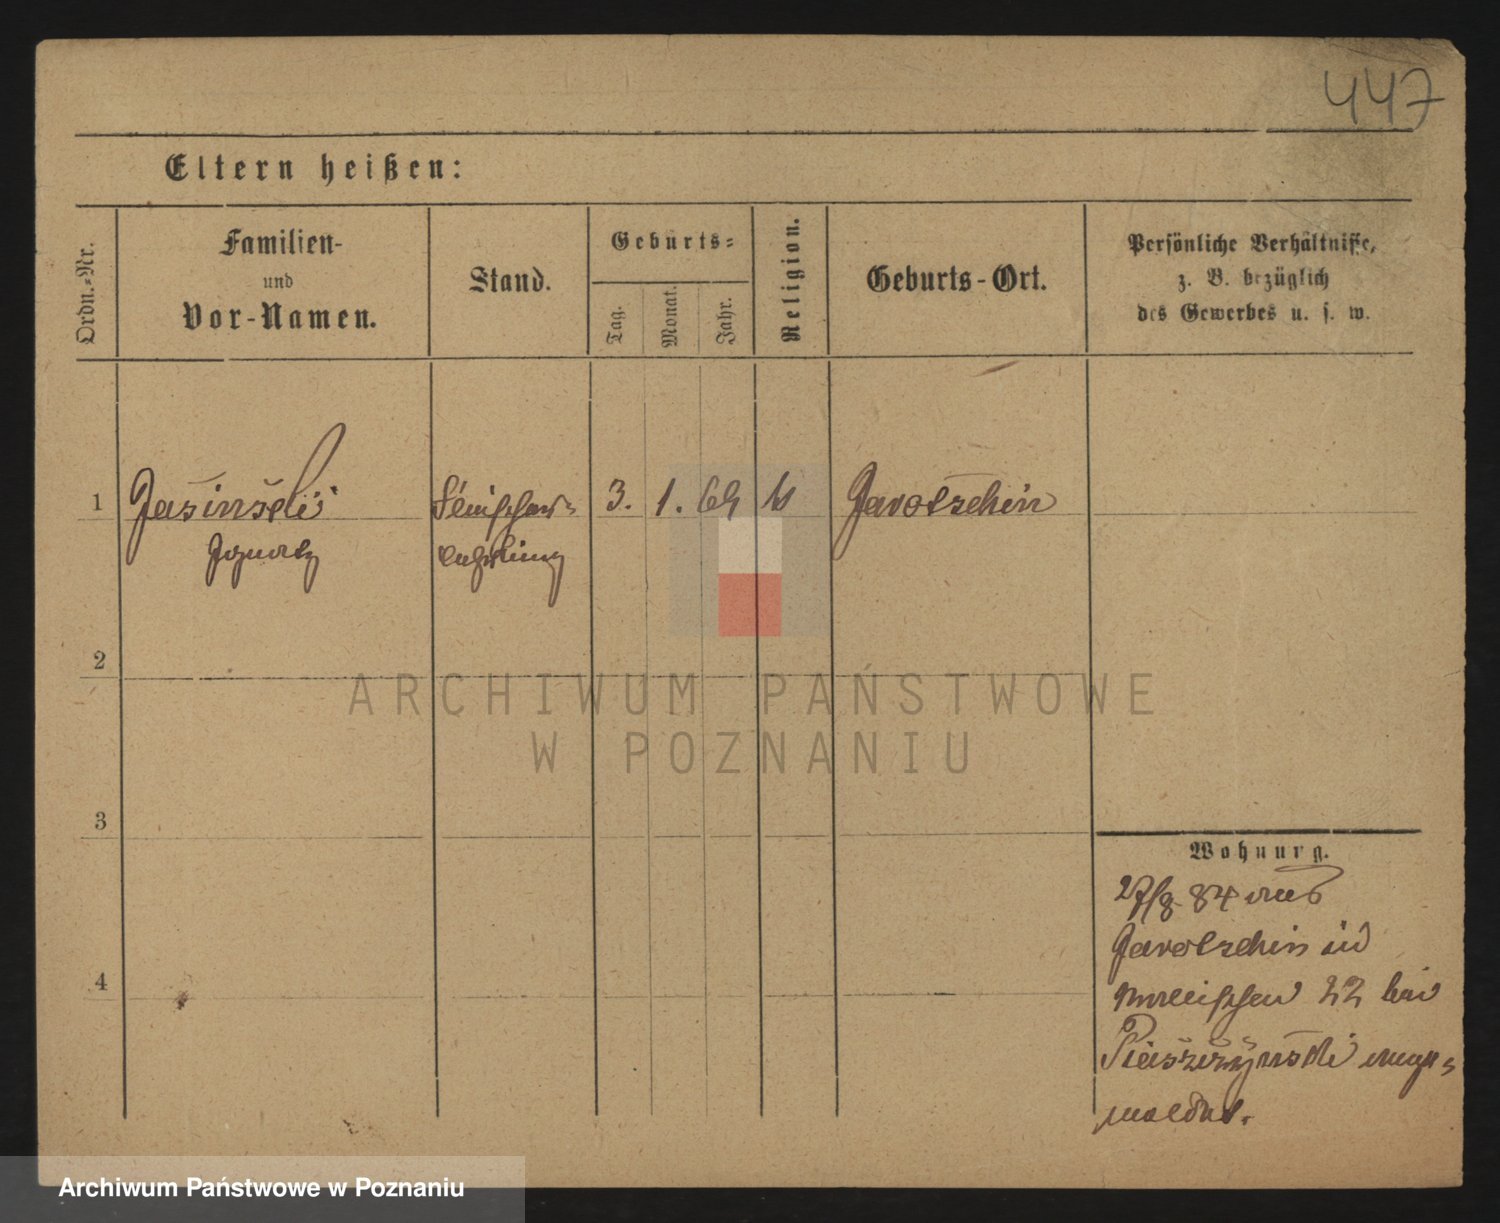 447
Eltern heißen:
Ordn.-Nr.
Familien-
und
Vor-Namen.
Stand.
Geburts-
Tag.
Monat.
Jahr.
Religion.
Geburts-Ort.
Persönliche Verhältnisse,
z. B. bezüglich
des Gewerbes u. s. w.
1 Jasinski 3. 1. Jarotschin
Ignatz
2
3
4
Wohnung.
27/8 84 aus
Jarotschin in
22 bei
ange-
meldet.
ARCHIWUM PAŃSTWOWE
W POZNANIU
Archiwum Państwowe w Poznaniu